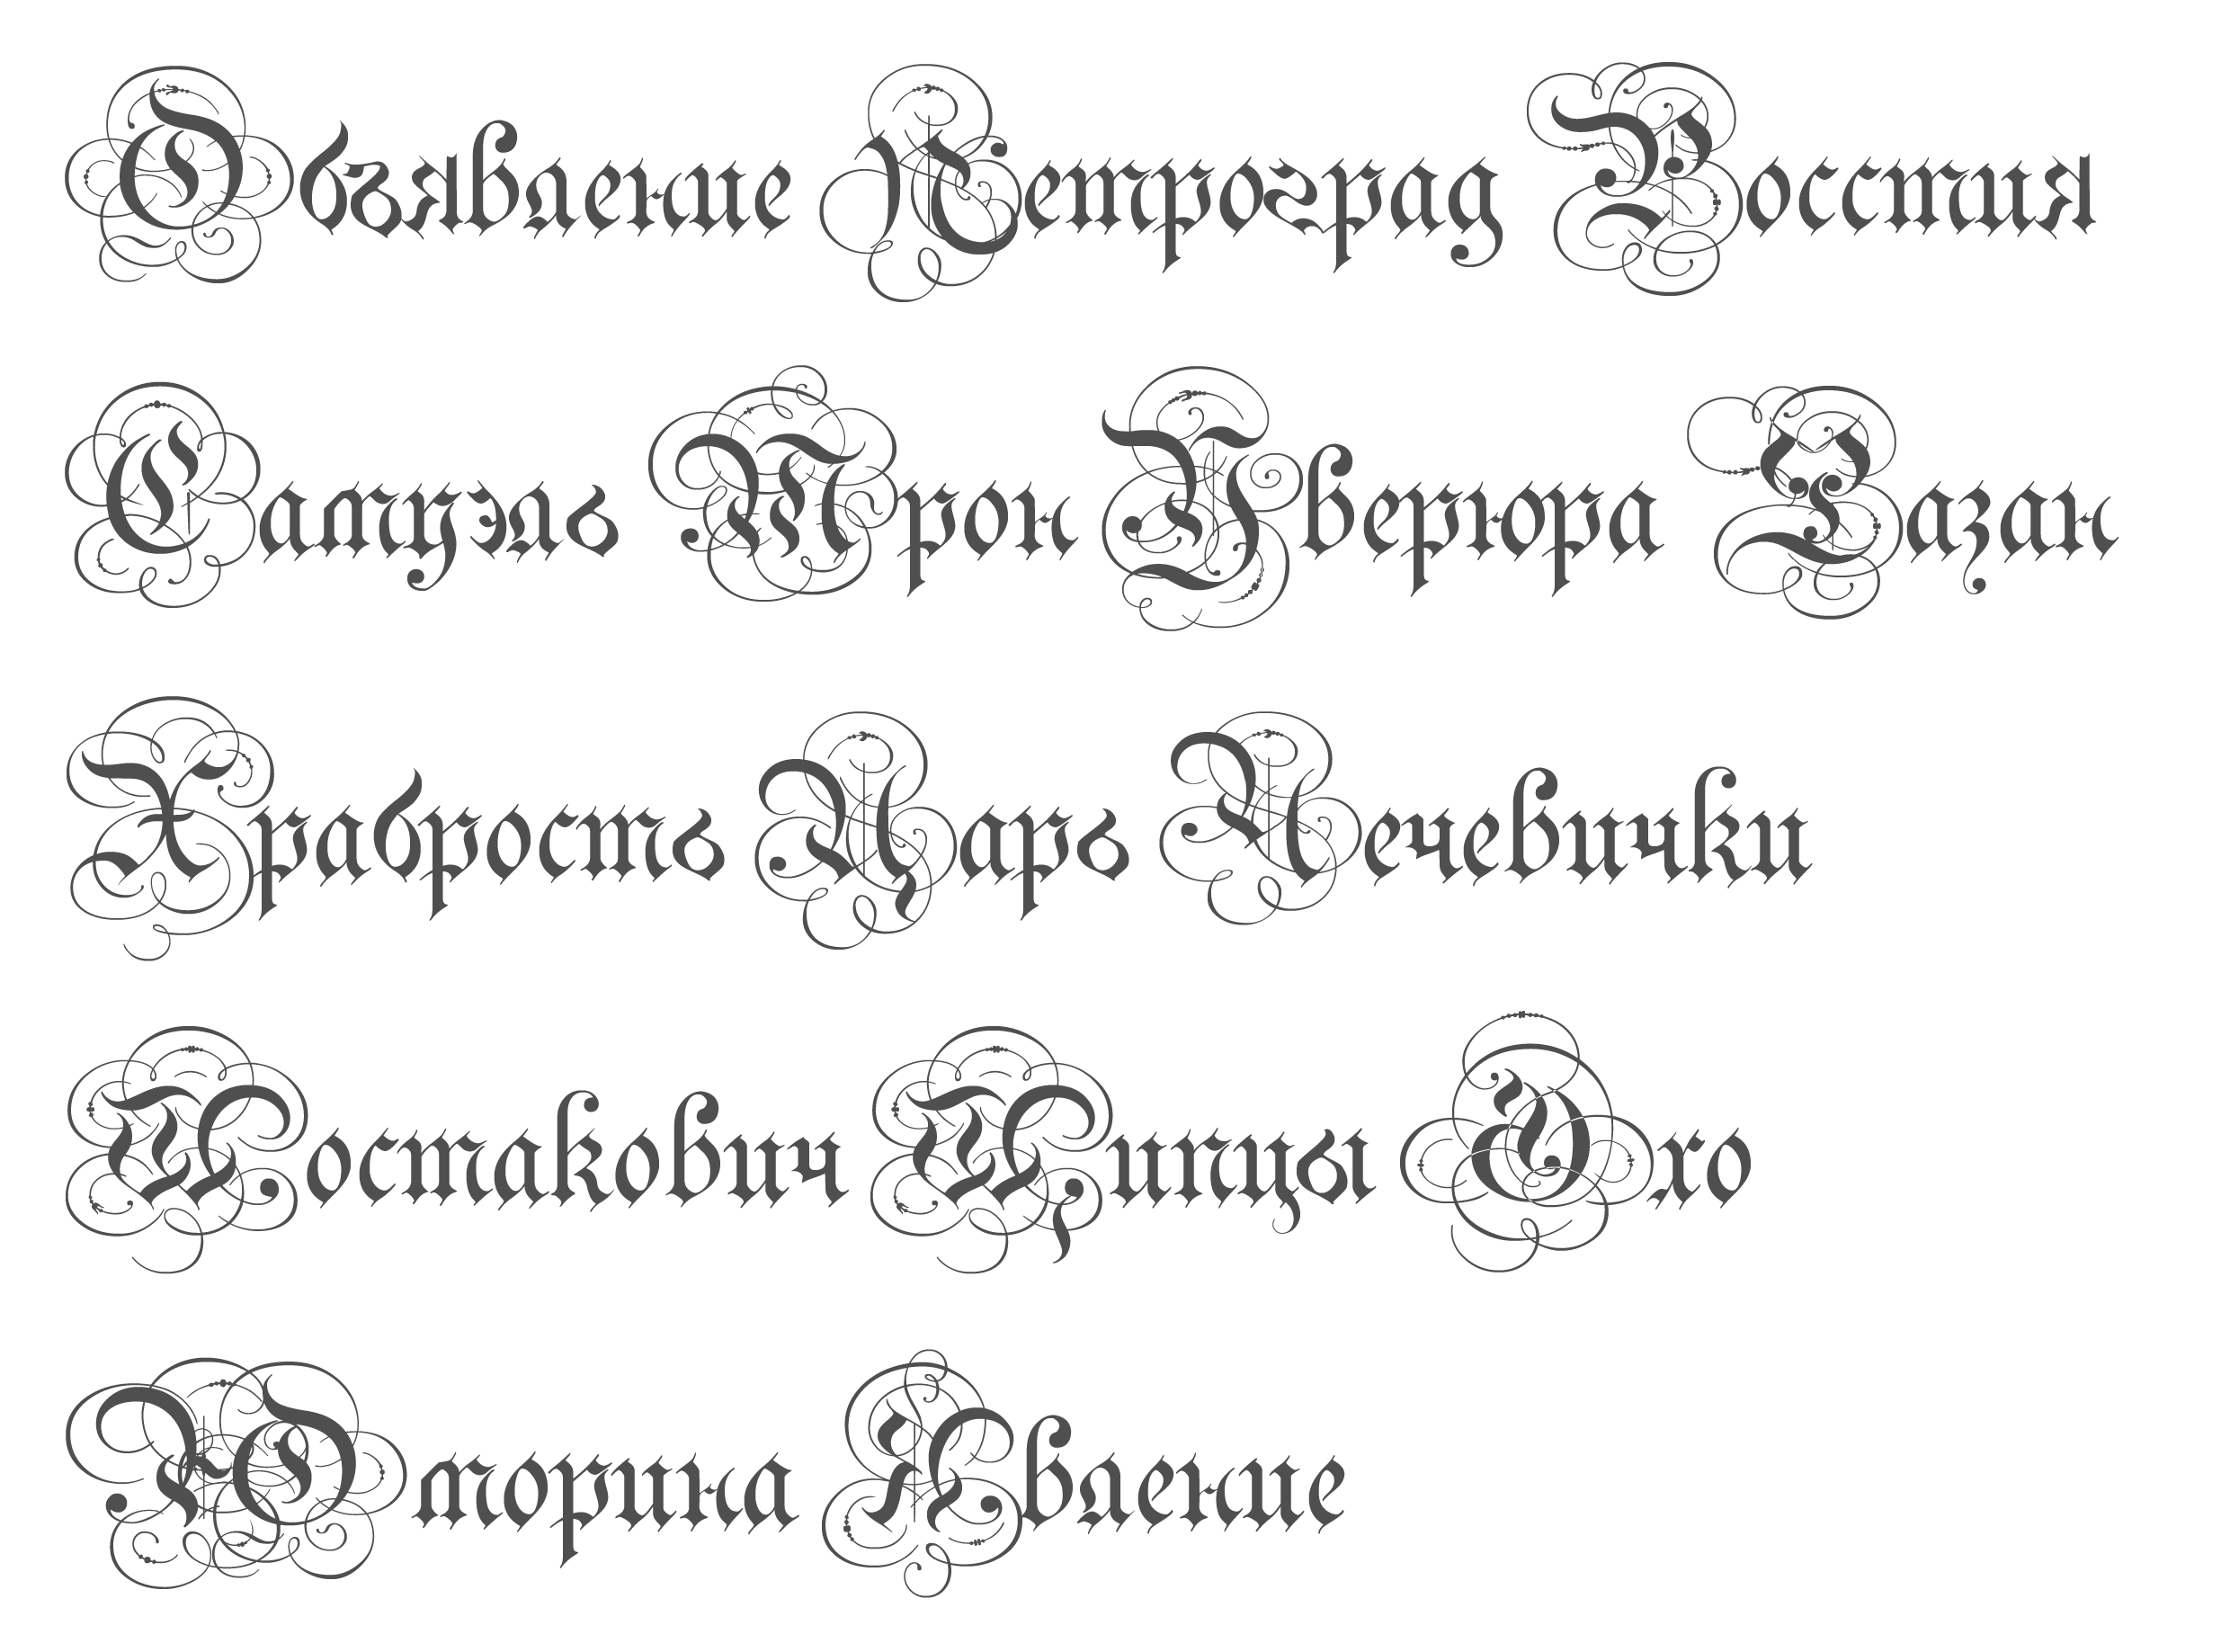 Объявление Петроград Россия
Самуэль Трон
Храбрость Царь
Шостакович Щипцы Эхо
Юморина Явление